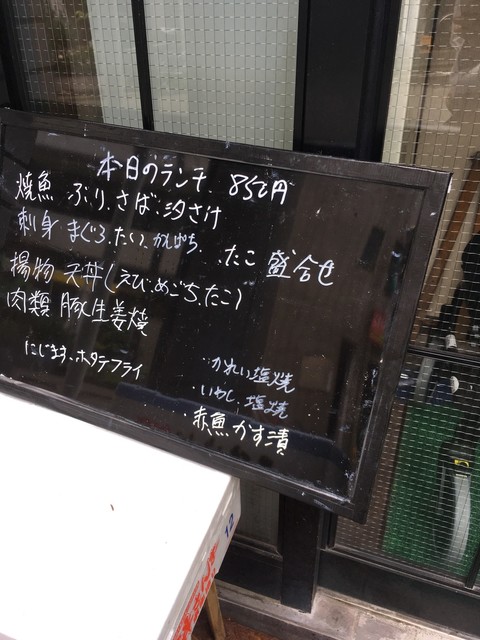 本日のランチ. 850円
焼魚 ぶり、さば、汐さけ
刺身 まぐろ、たい、かんぱち、たこ 盛合せ
揚物 天丼(えび、めごち、たこ)
肉類 豚生姜焼
にじます、ホタテフライ
かれい塩焼
いわし、塩焼
赤魚かす漬
12